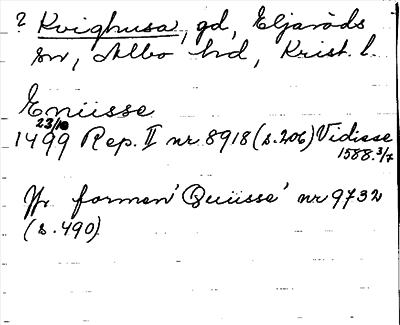 ? Kvighusa, gd, Eljaröds
sn, Albo hd, Krist. l.
Eniisse
23/10
1499 Rep. II nr 8918 (s. 206) Vidisse
1588. 3/7
Jfr formen 'Quiisse' nr 9732
(s. 490)